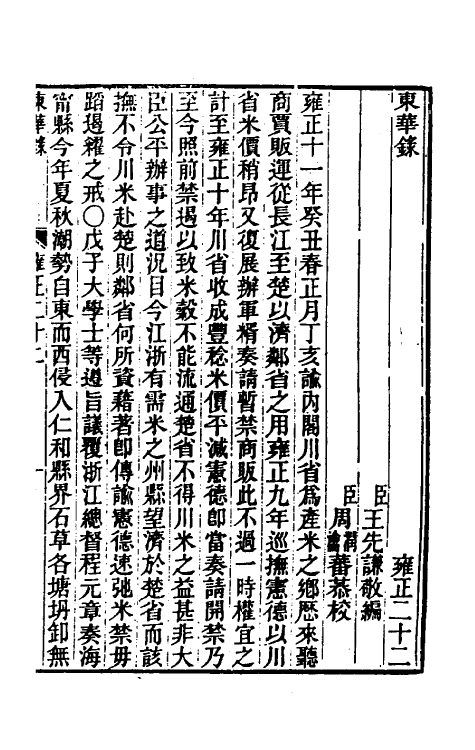 東華錄　雍正二十二
臣王先謙敬編
臣周潤蕃恭校
雍正十一年癸丑春正月丁亥諭内閣川省爲產米之鄉歷來聽
商賈販運從長江至楚以濟鄰省之用雍正九年巡撫憲德以川
省米價稍昂又復展辦軍糈奏請暫禁商販此不過一時權宜之
計至雍正十年川省收成豐稔米價平減憲德卽當奏請開禁乃
至今照前禁遏以致米穀不能流通楚省不得川米之益甚非大
臣公平辦事之道況日今江浙有需米之州縣望濟於楚省而該
撫不令川米赴楚則鄰省何所資藉著卽傳諭憲德速弛米禁毋
蹈遏糴之戒〇戊子大學士等遵旨議覆浙江總督程元章奏海
甯縣今年夏秋潮勢自東而西侵入仁和縣界石草各塘坍卸無
東華錄　雍正二十二　一